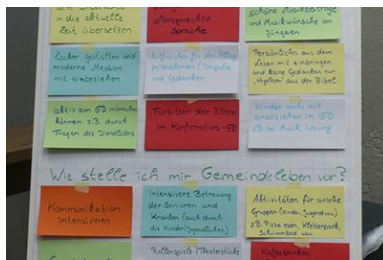 in die aktuelle
Zeit übersetzen
altersgerechte
Sprache
schöne Musikbeiträge
und Musikwünsche von
Jüngeren
locker gestalten und
moderne Medien
mit einbeziehen
mitnehmen / Impulse
und Gedanken
Persönliches aus dem
Leben mit einbringen
und keine Gedanken nur
aus der Bibel
aktiv am GD mitmachen
können z.B. durch
Tragen des
der Eltern
im Konfirmations-GD
Kinder mehr mit
einbeziehen im GD
z.B. bei Musik, Lesung
Wie stelle ich mir Gemeindeleben vor?
Kommunikation
intensivieren
intensivere Betreuung
der Senioren und
Kranken (auch durch
die Kinder/Jugendlichen)
Aktivitäten für unsere
Gruppen (Kinder, Jugend usw.)
z.B. Pizza essen, Kletterpark,
Schwimmbad usw.
Rollenspiele / Theaterstücke